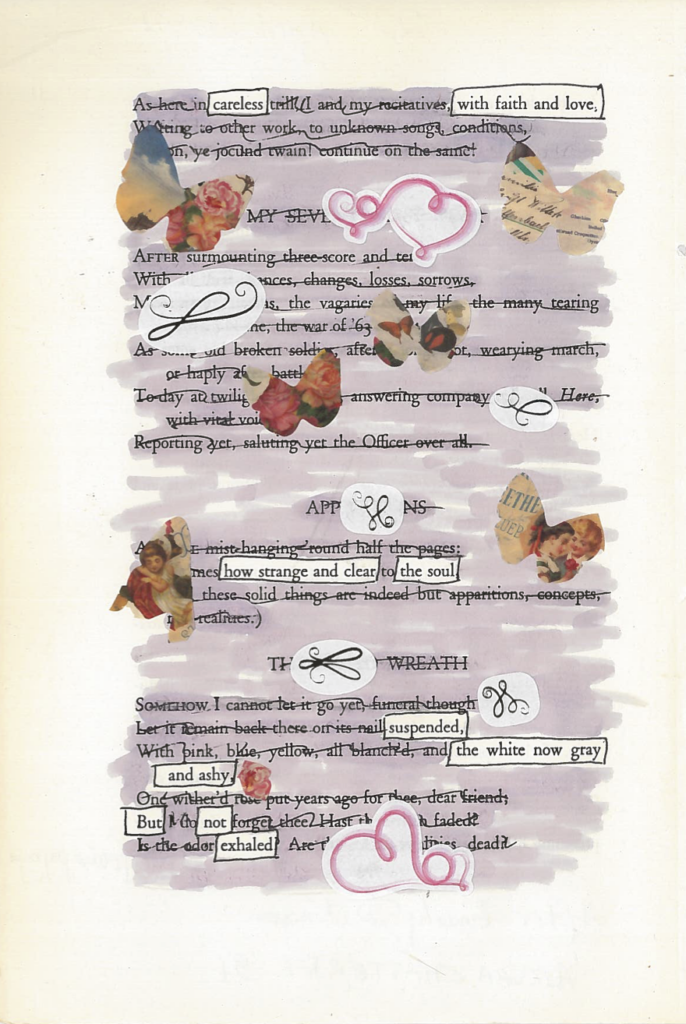 As here in careless trill, I and my recitatives, with faith and love,
Wafting to other work, to unknown songs, conditions,
on, ye jocund twain! continue on the same!
MY SEVE
AFTER surmounting three-score and ten
With all chances, changes, losses, sorrows,
My, the vagaries my life, the many tearing
the war of '63
As some old broken soldier, after, wearying march,
or haply after battle
To-day at twilight, answering company roll, Here,
with vital voice
Reporting yet, saluting yet the Officer over all.
APP NS
mist hanging 'round half the pages:
mes how strange and clear to the soul
these solid things are indeed but apparitions, concepts,
realities.)
TH WREATH
SOMEHOW I cannot let it go yet, funeral though
Let it remain back there on its nail suspended,
With pink, blue, yellow, all blanch'd, and the white now gray
and ashy,
One wither'd rose put years ago for thee, dear friend;
But I do not forget thee. Hast th faded?
Is the odor exhaled? Are t dead?
ETHE
UEB